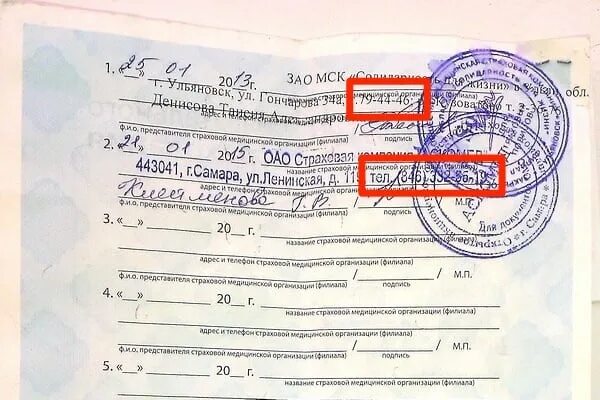 1. «25» 01 2013г. ЗАО МСК «Солидарность для жизни» в Ульян. обл.
название страховой медицинской организации (филиала)
г. Ульяновск, ул. Гончарова 34а, т. 79-44-46,
адрес и телефон страховой медицинской организации (филиала)
Денисова Таисия
ф.и.о. представителя страховой медицинской организации (филиала) подпись
2. «21» 01 2015г. ОАО Страховая компания
название страховой медицинской организации (филиала)
443041, г.Самара, ул.Ленинская, д. 119 тел. (846) 332-86-19
адрес и телефон страховой медицинской организации (филиала)
Т. В.
ф.и.о. представителя страховой медицинской организации (филиала) подпись
3. «__» 20__ г.
название страховой медицинской организации (филиала)
адрес и телефон страховой медицинской организации (филиала)
/ / М.П.
ф.и.о. представителя страховой медицинской организации (филиала) подпись
4. «__» 20__ г.
название страховой медицинской организации (филиала)
адрес и телефон страховой медицинской организации (филиала)
/ / М.П.
ф.и.о. представителя страховой медицинской организации (филиала) подпись
5. «__» 20__ г.
название страховой медицинской организации (филиала)